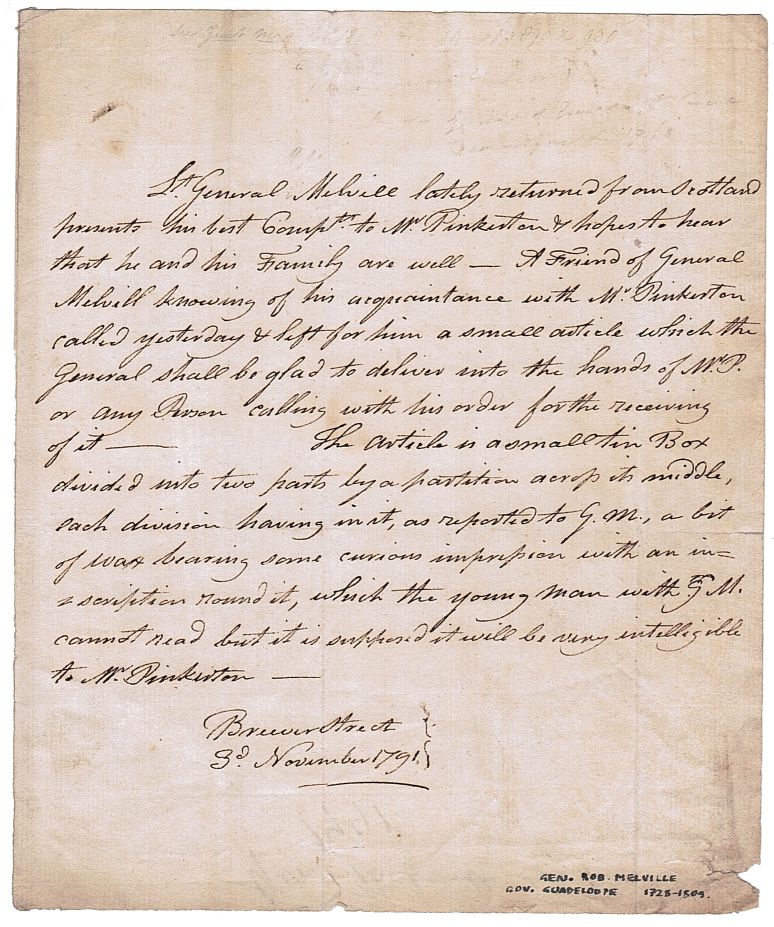 Lt. General Melvill lately returned from Scotland
presents his best Complts. to Mr. Pinkerton & hopes to hear
that he and his Family are well — A Friend of General
Melvill knowing of his acquaintance with Mr. Pinkerton
called yesterday & left for him a small article which the
General shall be glad to deliver into the hands of Mr. P.
or any Person calling with his order for the receiving
of it — The article is a small tin Box
divided into two parts by a partition across its middle,
each division having in it, as reported to G. M., a bit
of wax bearing some curious impression with an in=
=scription round it, which the young man with G. M.
cannot read but it is supposed it will be very intelligible
to Mr. Pinkerton —
Brewer Street
3d. November 1791.
GEN. ROB. MELVILLE
GOV. GUADELOUPE 1723-1809.